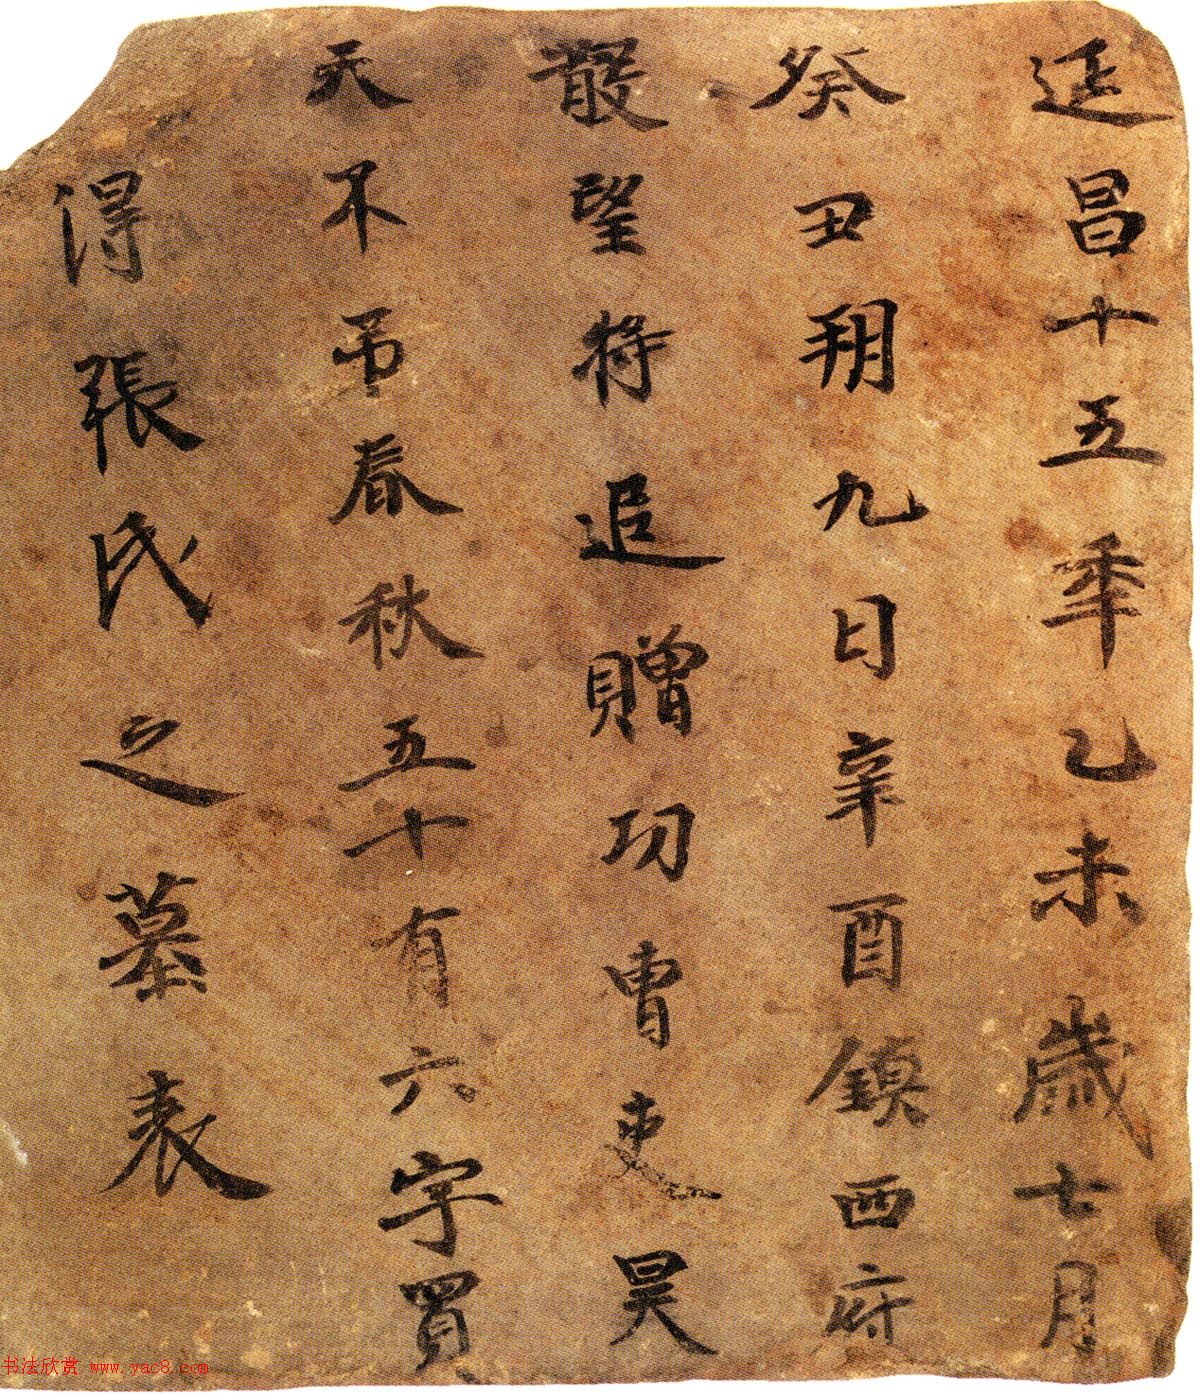 延昌十五年乙未歲七月
癸丑朔九日辛酉鎮西府
散望將追贈功曹吏昊
天不弔春秋五十有六字買
得張氏之墓表
书法欣赏 www.yac8.com